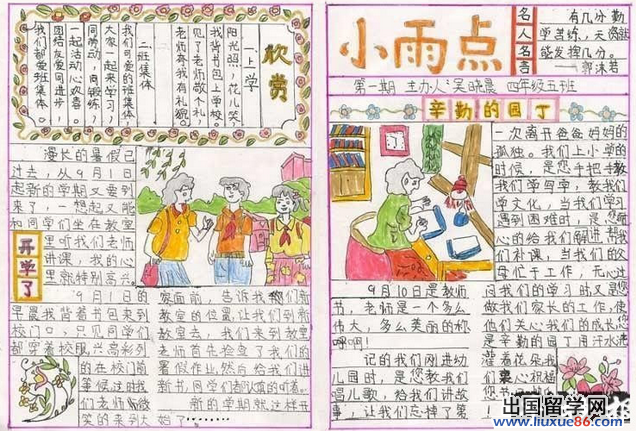 欣赏
一、上学
阳光照,花儿笑,
我背书包上学校。
见了老师敬个礼,
老师夸我有礼貌。
二、班集体
我们可爱的班集体,
大家一起来学习,
同劳动,同锻炼,
一起活动心欢喜。
团结友爱同进步,
我们都爱班集体。
漫长的暑假已
过去,从9月1日
起新的学期又要到
来了,一想起又能
和同学们坐在教室
里听我们老师
讲课,我的心
里就特别高兴。
开学了
9月1日的
早晨我背着书包来到
校门口,只见同学们
都穿着校服兴高彩烈
的在校门前
等候这时我
们老师微
笑的来到
面前,告诉我们新
教室的位置,让我们到新
教室去,我们来到教室
老师首先检查了我们的
暑假作业然后给我们讲
新书,同学们都认真的听着。
新的学期就这样开
始了
小雨点
名人名言
有几分勤
学苦练,天资就
能发挥几分。
——郭沫若
第一期 主办人:吴晓晨 四年级五班
辛勤的园丁
一次离开爸爸妈妈的
孤独。我们上小学的
时候,是您手把手教
我们学写字,教我们
学文化,当我们学习
遇到困难时,是您耐
心的给我们解进帮我
们补课,当我们的父
母忙于工作,无心过
问我们的学习时又是您
做我们家长的工作,使
他们关心我们的成长您
是辛勤的园丁用汗水浇
灌着花朵我
们衷心祝福
9月10日是教师
节,老师是一个多么
伟大,多么美丽的称
呼啊!
记的我们刚进幼
儿园时,是您教我们
唱儿歌,给我们讲故
事,让我们忘掉了第
出国留学网
www.liuxue86.com